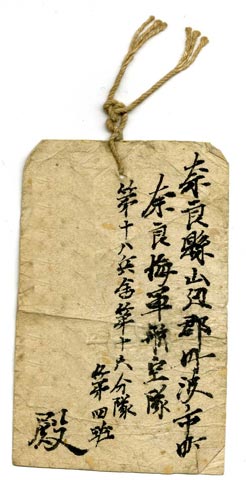 奈良縣山辺郡丹波市町
奈良海軍航空隊
第十八兵舎第十六分隊
第四班
殿